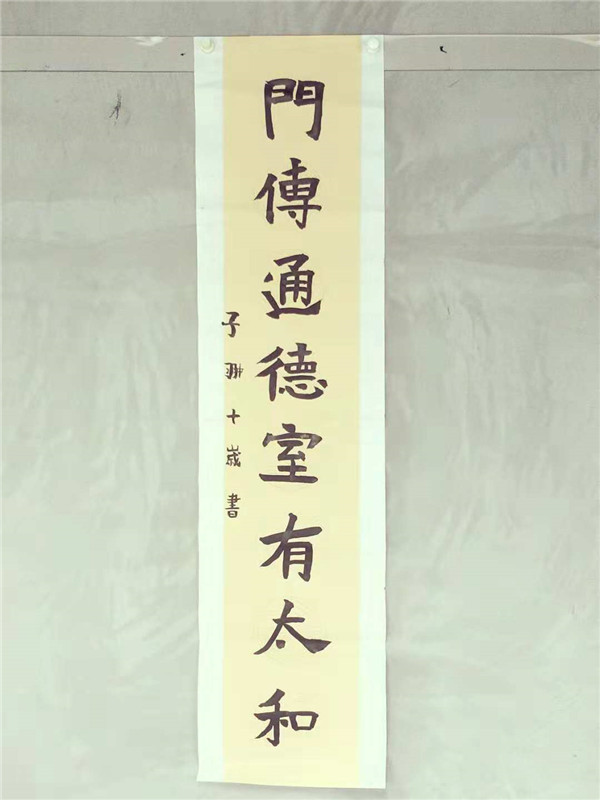 門傳通德室有太和
子 十歲書